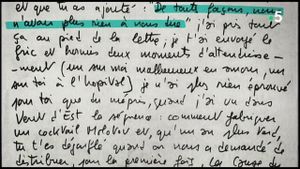 et que tu as ajouté : "De toute façons, nous
n'avons plus rien à nous dire" j'ai pris tout
ça au pied de la lettre, je t'ai envoyé le
fric et hormis deux moment d'attendrisse-
-ment (un sur moi malheureux en amour, un
sur toi à l'hopital) je n'ai plus rien éprouvé
pour toi que du mépris, quand j'ai vu dans
Vent d'Est la séquence : comment fabriquer
un cocktail Molotov et, qu'un an plus tard,
tu t'es dégonflé quand on nous a demandé de
distribuer pour la première fois La Cause du
5